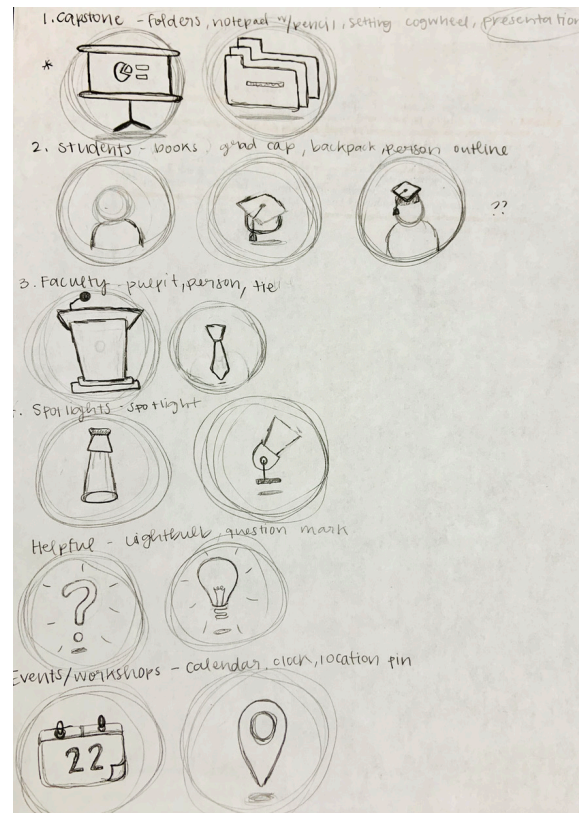 1. Capstone - folders, notepad w/pencil, setting cogwheel, presentation
*
2. Students - books, grad cap, backpack, person outline
??
3. Faculty - pulpit, person, tie
. Spotlights - spotlight
Helpful - lightbulb, question mark
Events/workshops - calendar, clock, location pin
22